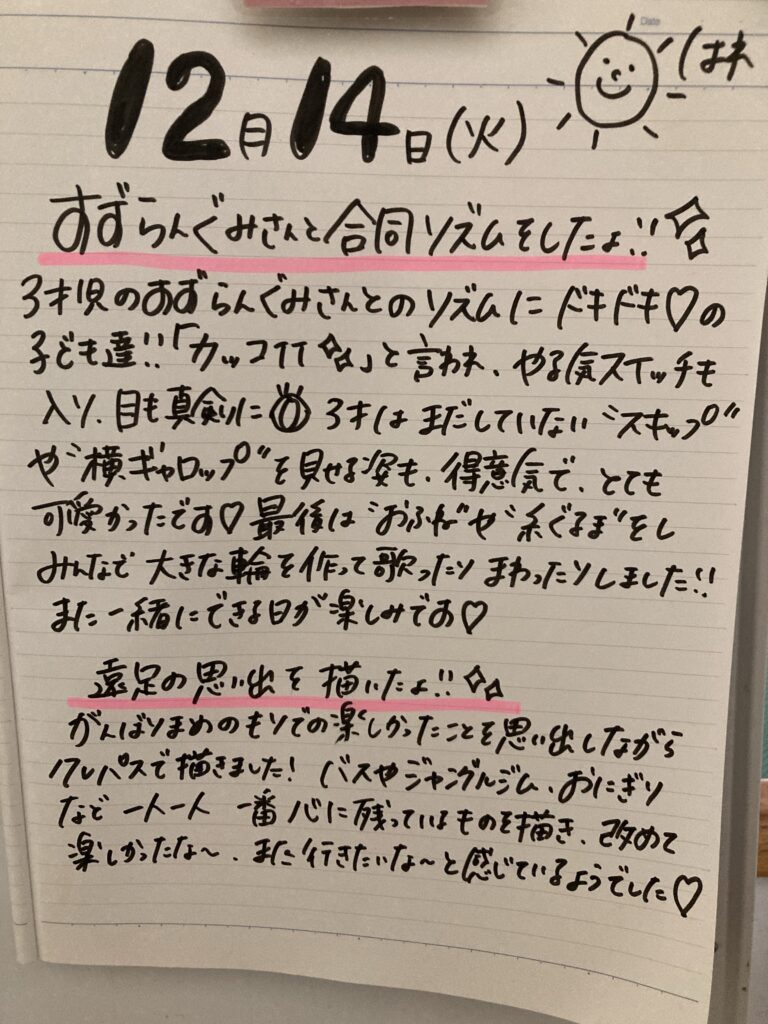 Date
12月14日(火) はれ
すずらんぐみさんと合同リズムをしたよ!!
3才児のすずらんぐみさんとのリズムにドキドキ♡の
子ども達!!「カッコイイ」と言われ、やる気スイッチも
入り、目も真剣に 3才はまだしていない“スキップ”
や“横ギャロップ”を見せる姿も、得意気で、とても
可愛かったです♡最後は“おふね”や“糸ぐるま”をし
みんなで大きな輪を作って歌ったりまわったりしました!!
また一緒にできる日が楽しみです♡
遠足の思い出を描いたよ!!
がんばりまめのもりでの楽しかったことを思い出しながら
クレパスで描きました! バスやジャングルジム、おにぎり
など一人一人一番心に残っているものを描き、改めて
楽しかったな〜、また行きたいな〜と感じているようでした♡